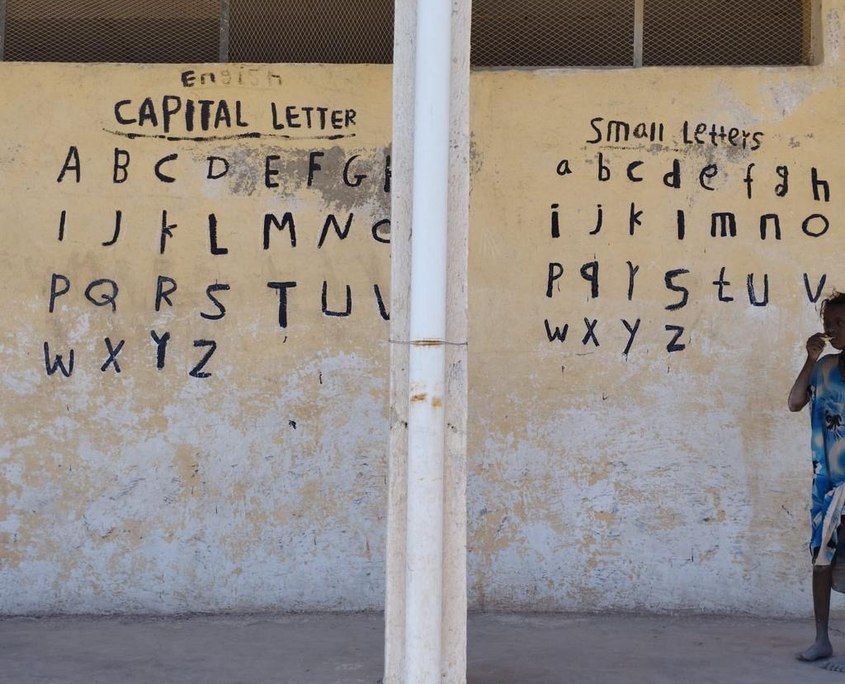 English
CAPITAL LETTER
A B C D E F G H
I J k L M N O
P Q R S T U V
W X Y Z
Small Letters
a b c d e f g h
i j k l m n o
p q r s t u v
w x y z